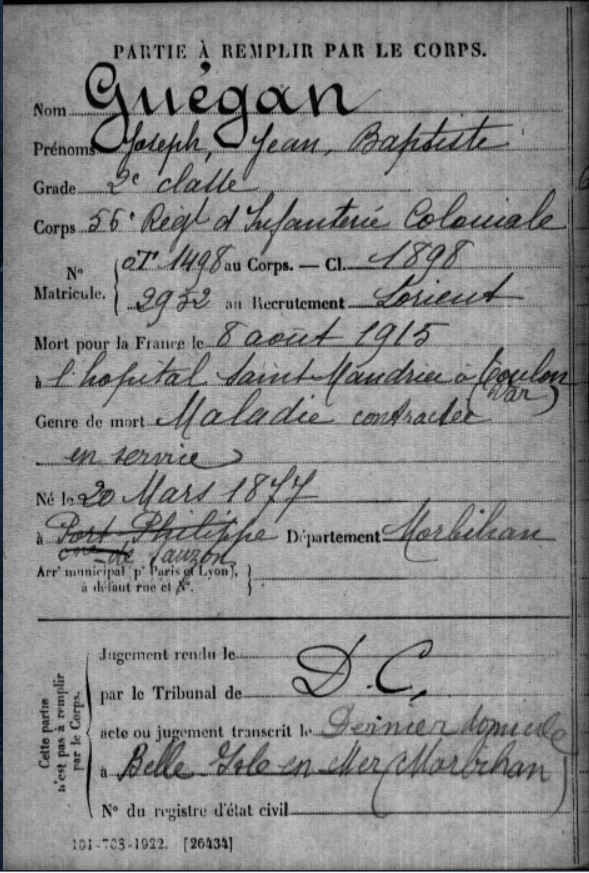 PARTIE À REMPLIR PAR LE CORPS.
Nom Guégan
Prénoms Joseph, Jean, Baptiste
Grade 2e classe
Corps 56e Regt d'Infanterie Coloniale
No Matricule. { 1498 au Corps. — Cl. 1898
2932 au Recrutement Lorient
Mort pour la France le 8 août 1915
à l'hopital Saint Mandrier à Toulon
(Var)
Genre de mort Maladie contractée
en service
Né le 20 Mars 1877
à Port Philippe Département Morbihan
Sauzon
Arrt municipal (pr Paris et Lyon), }
à défaut rue et No.
Cette partie n'est pas à remplir par le Corps.
Jugement rendu le
par le Tribunal de D. C.
acte ou jugement transcrit le Dernier domicile
à Belle Isle en Mer (Morbihan)
No du registre d'état civil
101-708-1922. [26434]